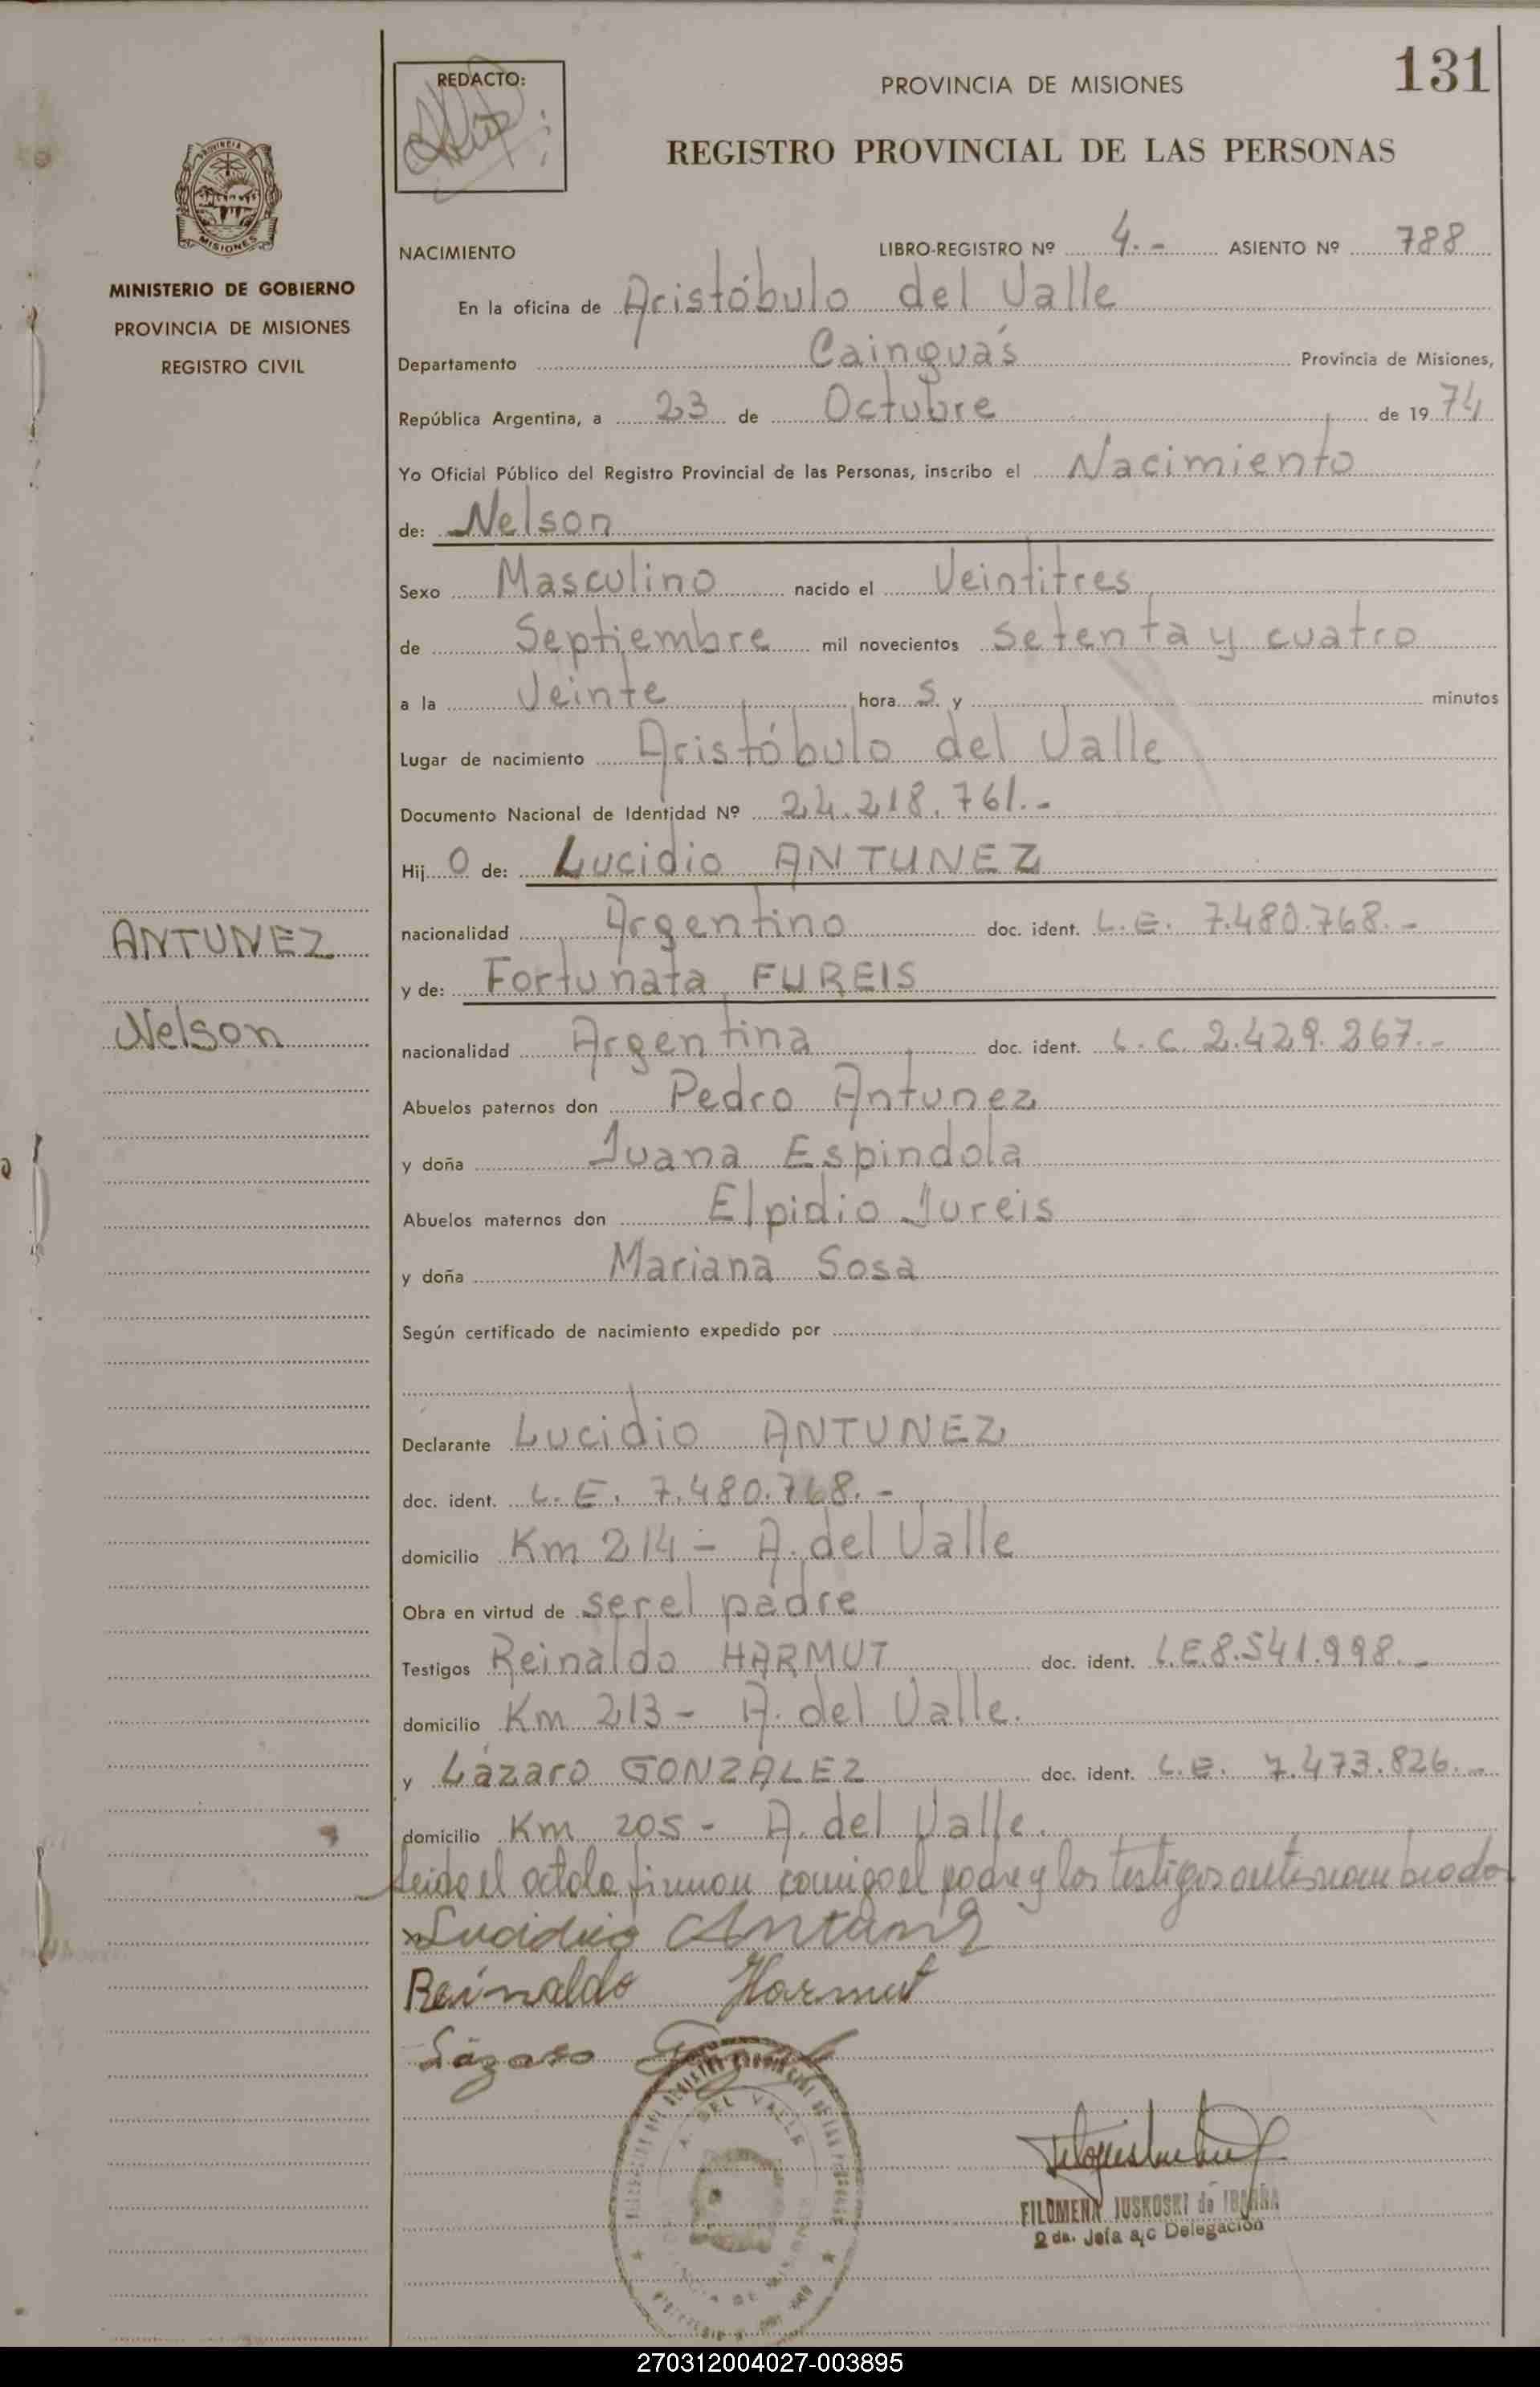 131
REDACTO:
PROVINCIA DE MISIONES
REGISTRO PROVINCIAL DE LAS PERSONAS
PROVINCIA
MISIONES
MINISTERIO DE GOBIERNO
PROVINCIA DE MISIONES
REGISTRO CIVIL
NACIMIENTO LIBRO-REGISTRO Nº 4.- ASIENTO Nº 788
En la oficina de Aristóbulo del Valle
Departamento Cainguás Provincia de Misiones,
República Argentina, a 23 de Octubre de 1974
Yo Oficial Público del Registro Provincial de las Personas, inscribo el Nacimiento
de: Nelson
Sexo Masculino nacido el Veintitres
de Septiembre mil novecientos setenta y cuatro
a la Veinte hora s y minutos
Lugar de nacimiento Aristóbulo del Valle
Documento Nacional de Identidad Nº 24.218.761.-
Hijo de: Lucidio ANTUNEZ
nacionalidad Argentino doc. ident. L.E. 7.480.768.-
y de: Fortunata FUREIS
nacionalidad Argentina doc. ident. L.C. 2.429.267.-
ANTUNEZ
Nelson
Abuelos paternos don Pedro Antunez
y doña Juana Espindola
Abuelos maternos don Elpidio Jureis
y doña Mariana Sosa
Según certificado de nacimiento expedido por
Declarante Lucidio ANTUNEZ
doc. ident. L.E. 7.480.768.-
domicilio Km 214 - A. del Valle
Obra en virtud de ser el padre
Testigos Reinaldo HARMUT doc. ident. L.E. 8.541.998.-
domicilio Km 213 - A. del Valle.
y Lázaro GONZALEZ doc. ident. L.E. 7.473.826.-
domicilio Km 205 - A. del Valle.
Leido el acta la firman comigo el padre y los testigos antes nombrados
Lucidio Antunez
Reinaldo Harmut
Lázaro
A. DEL VALLE
FILOMENA JUSKOSKI de IBARRA
2 da. Jefa a/c Delegación
270312004027-003895